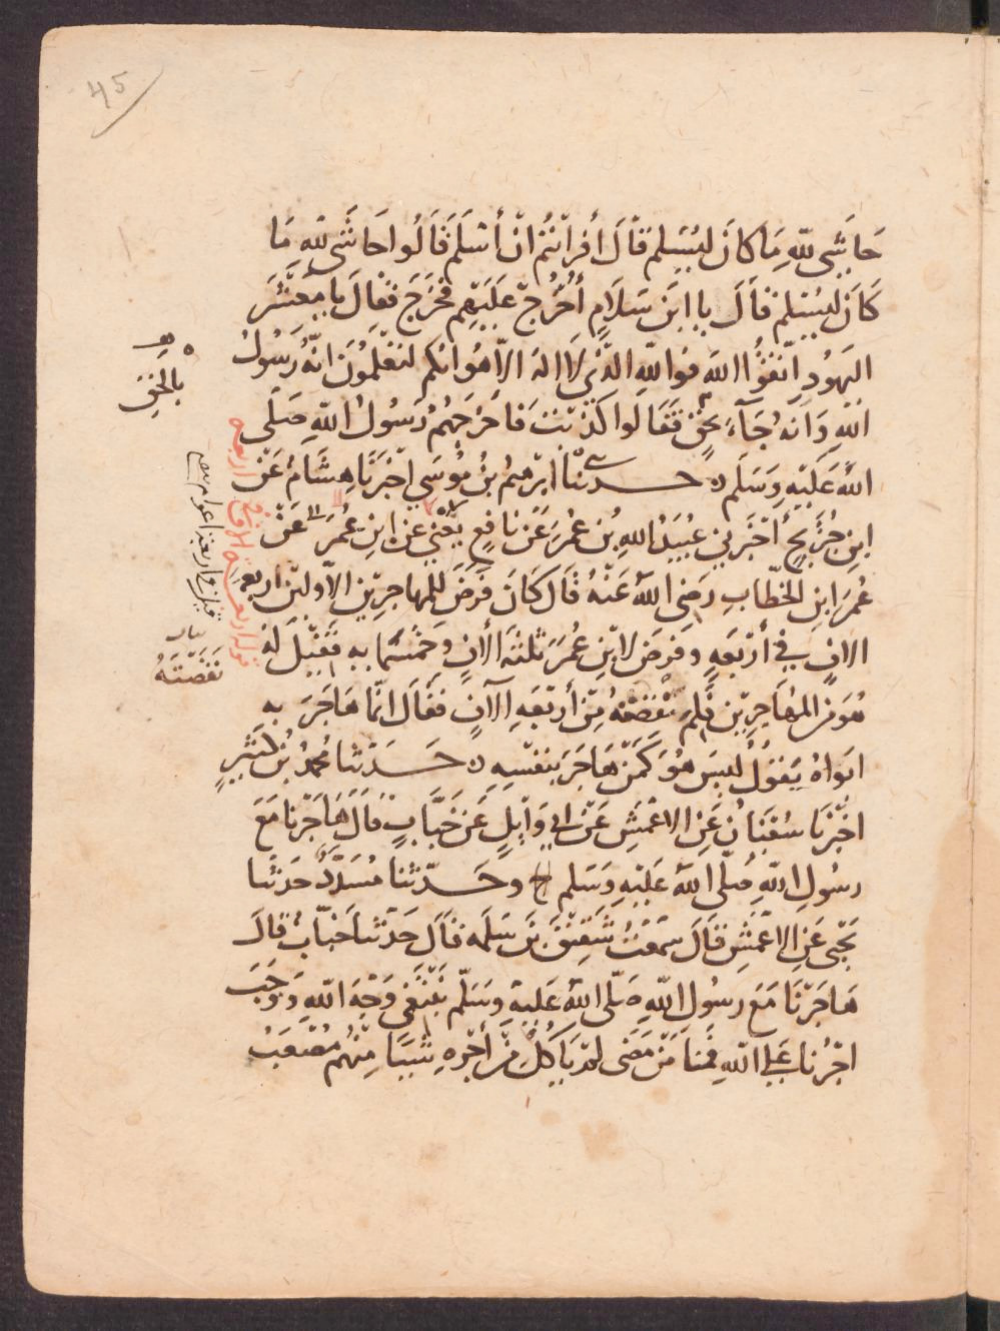 ٤٥
حَاشَى لِلَّهِ مَا كَانَ لِيُسْلِمَ قَالَ أَفَرَأَيْتُمْ إِنْ أَسْلَمَ قَالُوا حَاشَى لِلَّهِ مَا
كَانَ لِيُسْلِمَ قَالَ يا ابنَ سَلَامٍ أُخْرُجْ عَلَيْهِم فخَرَجَ فقالَ يا معْشَرَ
اليَهُودِ اتّقُوا اللهَ فواللهِ الّذي لَا إله إلّا هُوَ إنكم لتَعْلَمُونَ انّه رَسُولُ
اللهِ وَأنهُ جَآءَ بحقٍّ فقَالوا كَذبْتَ فاخرجَهُمْ رَسُولُ اللهِ صَلّى
اللهُ عَلَيْهِ وَسَلَم حدثنا ابرهيمُ بنُ مُوسَى اخبَرنَا هِشَامٌ عَنْ
ابنِ جُرَيجٍ أخبَرني عُبَيْدُ اللهِ بن عُمَرَ عَنْ نافِعٍ يَعْني عن ابنِ عُمَرَ عَنْ
عُمَرَ ابنِ الخطّابِ رَضى اللهُ عَنْهُ قَال كَانَ فَرَضَ لِلمهاجرين الأولين اربعة
الافٍ في أرْبَعَةٍ وفَرضَ لابْنِ عُمَرَ ثلثة الافٍ وخمسماية فقيلَ لهُ
هُوَ مِنَ المهَاجِرين فَلِمَ نَقَصْتَهُ مِنْ أربعَةِ آلآفٍ فقَال انّما هَاجَرَ به
ابَوَاهُ يَقولُ ليسَ هُوَ كَمَنْ هَاجَرَ بنَفْسِهِ حَدثنا محمدُ بْنُ كَثيرٍ
اخْبَرَنا سُفيَانُ عَنِ الاعْمَشِ عَنْ ابي وَايِلٍ عَن خَبَّابٍ قال هَاجَرْنا مَعَ
رسُولِ اللهِ صَلّى اللهُ عَلَيْهِ وَسَلم ح وحَدّثنا مُسَدَّدٌ حَدثَنا
يَحْيى عَنِ الاعْمَشِ قَالَ سَمعْتُ شَقيقَ بنَ سَلَمة قَال حَدّثنا خبّابٌ قال
هَاجَرْنَا مَعَ رسُولِ اللهِ صَلّى اللهُ عَلَيْهِ وَسَلّم نَبْتَغي وَجْهَ اللهِ وَوَجَبَ
اجْرُنا عَلى اللهِ فمِنا مَنْ مَضَى لمْ يَاكُلْ مِنْ أجْرِهِ شَيئًا مِنْهُم مُصْعَبُ
بالحق
نَقَصْتَهُ